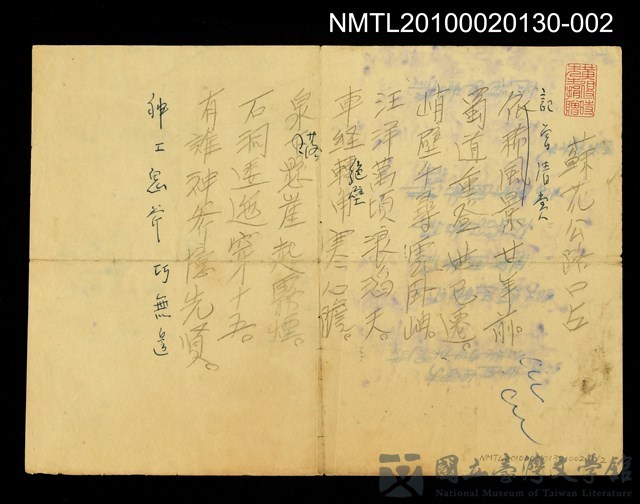 NMTL20100020130-002
蘇花公路口占
記曾清賞
依稀風景廿年前。
蜀道重登世已遷。
峭壁千尋雲臥岫。
汪洋萬頃浪滔天。
車経轉角寒心膽。
絕壁
泉瀑懸崖起霧煙。
石洞逶迤穿十五。
有誰神斧勝先賢。
神工鬼斧巧無邊
NMTL20100020130-002
國立臺灣文學館
National Museum of Taiwan Literature